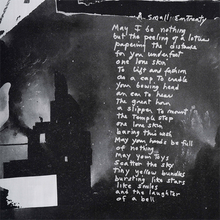 A Small Entreaty
May I be nothing
but the peeling of a lotus
papering the distance
for you underfoot
one lone skin
to lift and fashion
as a cap to cradle
your bowing head
an ear to hear
the great hour
a slipper to mount
the temple step
one lone skin
baring this wish
May your hands be full
of nothing
may your toys
scatter the sky
tiny yellow bundles
bursting like stars
like smiles
and the laughter
of a bell